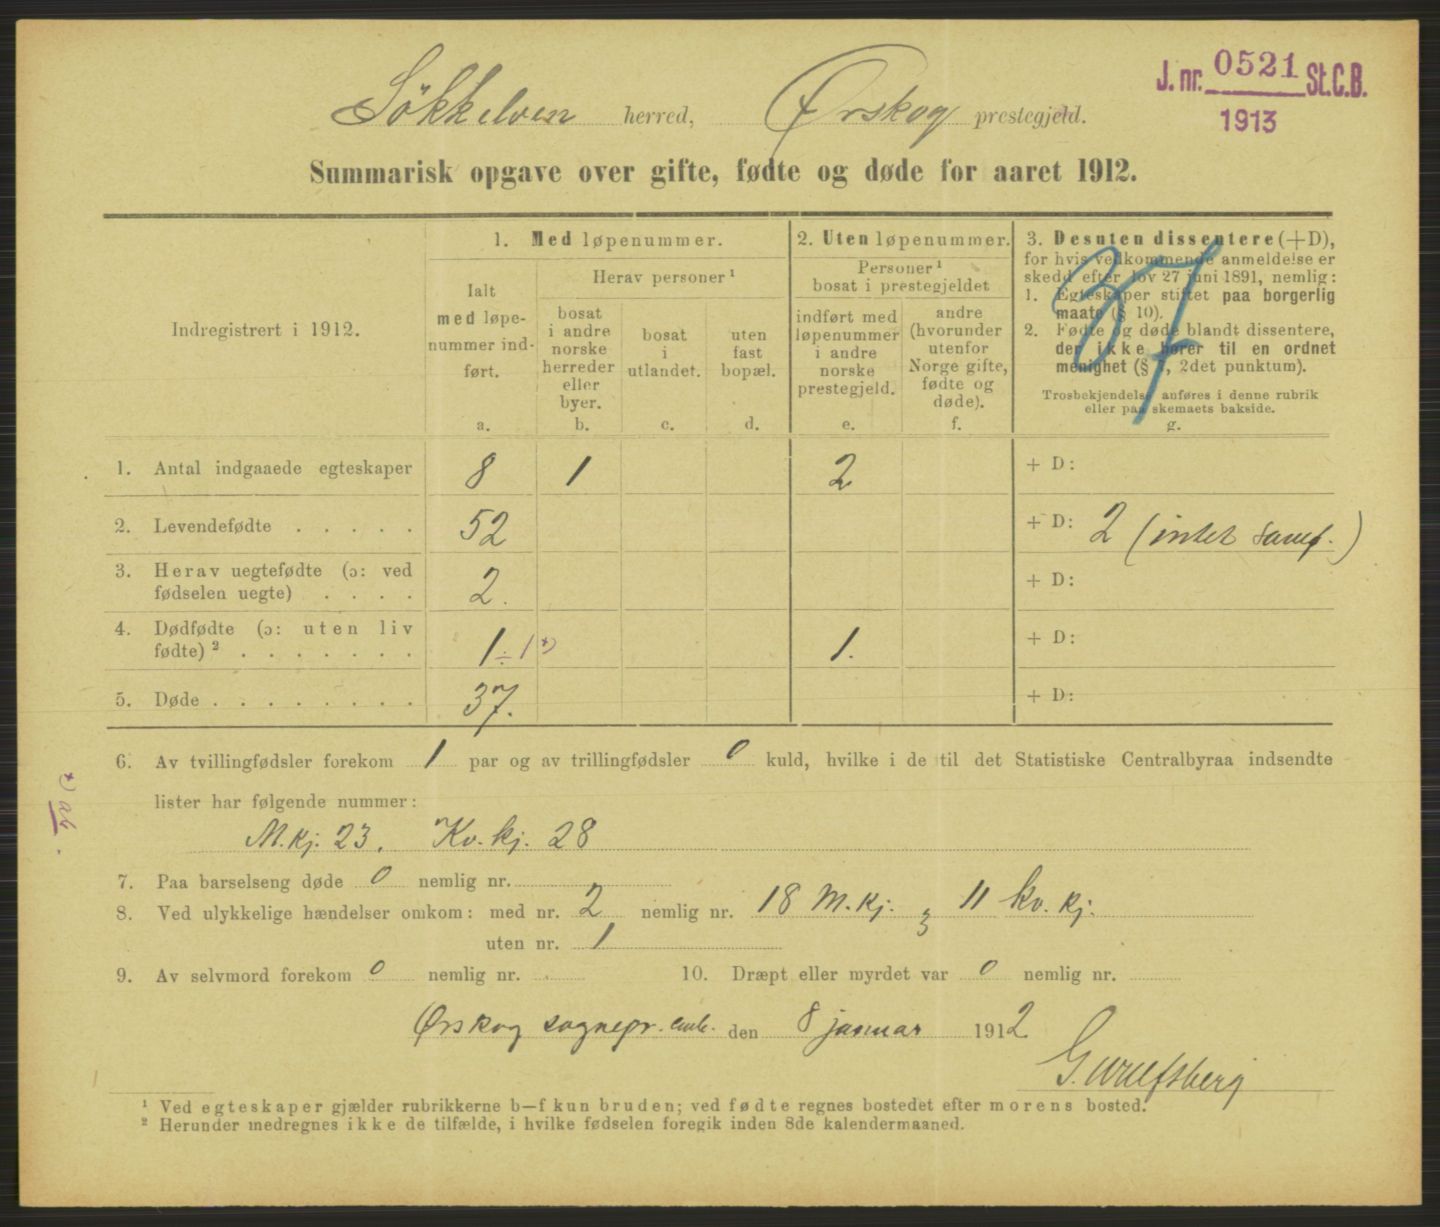 J. nr. 0521 St.C.B.
1913
Søkkelven herred, Ørskog prestegjeld.
Summarisk opgave over gifte, fødte og døde for aaret 1912.
Indregistrert i 1912.
1. Med løpenummer.
Ialt
med løpe-
nummer ind-
ført.
a.
Herav personer ¹
bosat
i andre
norske
herreder
eller
byer.
b.
bosat
i
utlandet.
c.
uten
fast
bopæl.
d.
2. Uten løpenummer.
Personer ¹
bosat i prestegjeldet
indført med
løpenummer
i andre
norske
prestegjeld.
e.
andre
(hvorunder
utenfor
Norge gifte,
fødte og
døde).
f.
3. Desuten dissentere (+D),
for hvis vedkommende anmeldelse er
skedd efter lov 27 juni 1891, nemlig:
1. Egteskaper stiftet paa borgerlig
maate (§ 10).
2. Fødte og døde blandt dissentere,
der ikke hører til en ordnet
menighet (§ , 2det punktum).
Trosbekjendelse anføres i denne rubrik
eller paa skemaets bakside.
g.
37
1. Antal indgaaede egteskaper 8 1 2 + D:
2. Levendefødte . . . . . 52 + D: 2 (intet samf.)
3. Herav uegtefødte (ɔ: ved
fødselen uegte) . . . . 2. + D:
4. Dødfødte (ɔ: uten liv
fødte) ² . . . . . . . 1 ÷ 1 ˣ) 1. + D:
5. Døde . . . . . . . . 37. + D:
6. Av tvillingfødsler forekom 1 par og av trillingfødsler 0 kuld, hvilke i de til det Statistiske Centralbyraa indsendte
lister har følgende nummer:
M.kj. 23. Kv. kj. 28
7. Paa barselseng døde 0 nemlig nr.
8. Ved ulykkelige hændelser omkom: med nr. 2 nemlig nr. 18 M.kj. 3 11 kv. kj.
uten nr. 1
9. Av selvmord forekom 0 nemlig nr. 10. Dræpt eller myrdet var 0 nemlig nr.
Ørskog sognepr. emb. den 8 januar 1912
G. Wulfsberg
¹ Ved egteskaper gjælder rubrikkerne b—f kun bruden; ved fødte regnes bostedet efter morens bosted.
² Herunder medregnes ikke de tilfælde, i hvilke fødselen foregik inden 8de kalendermaaned.